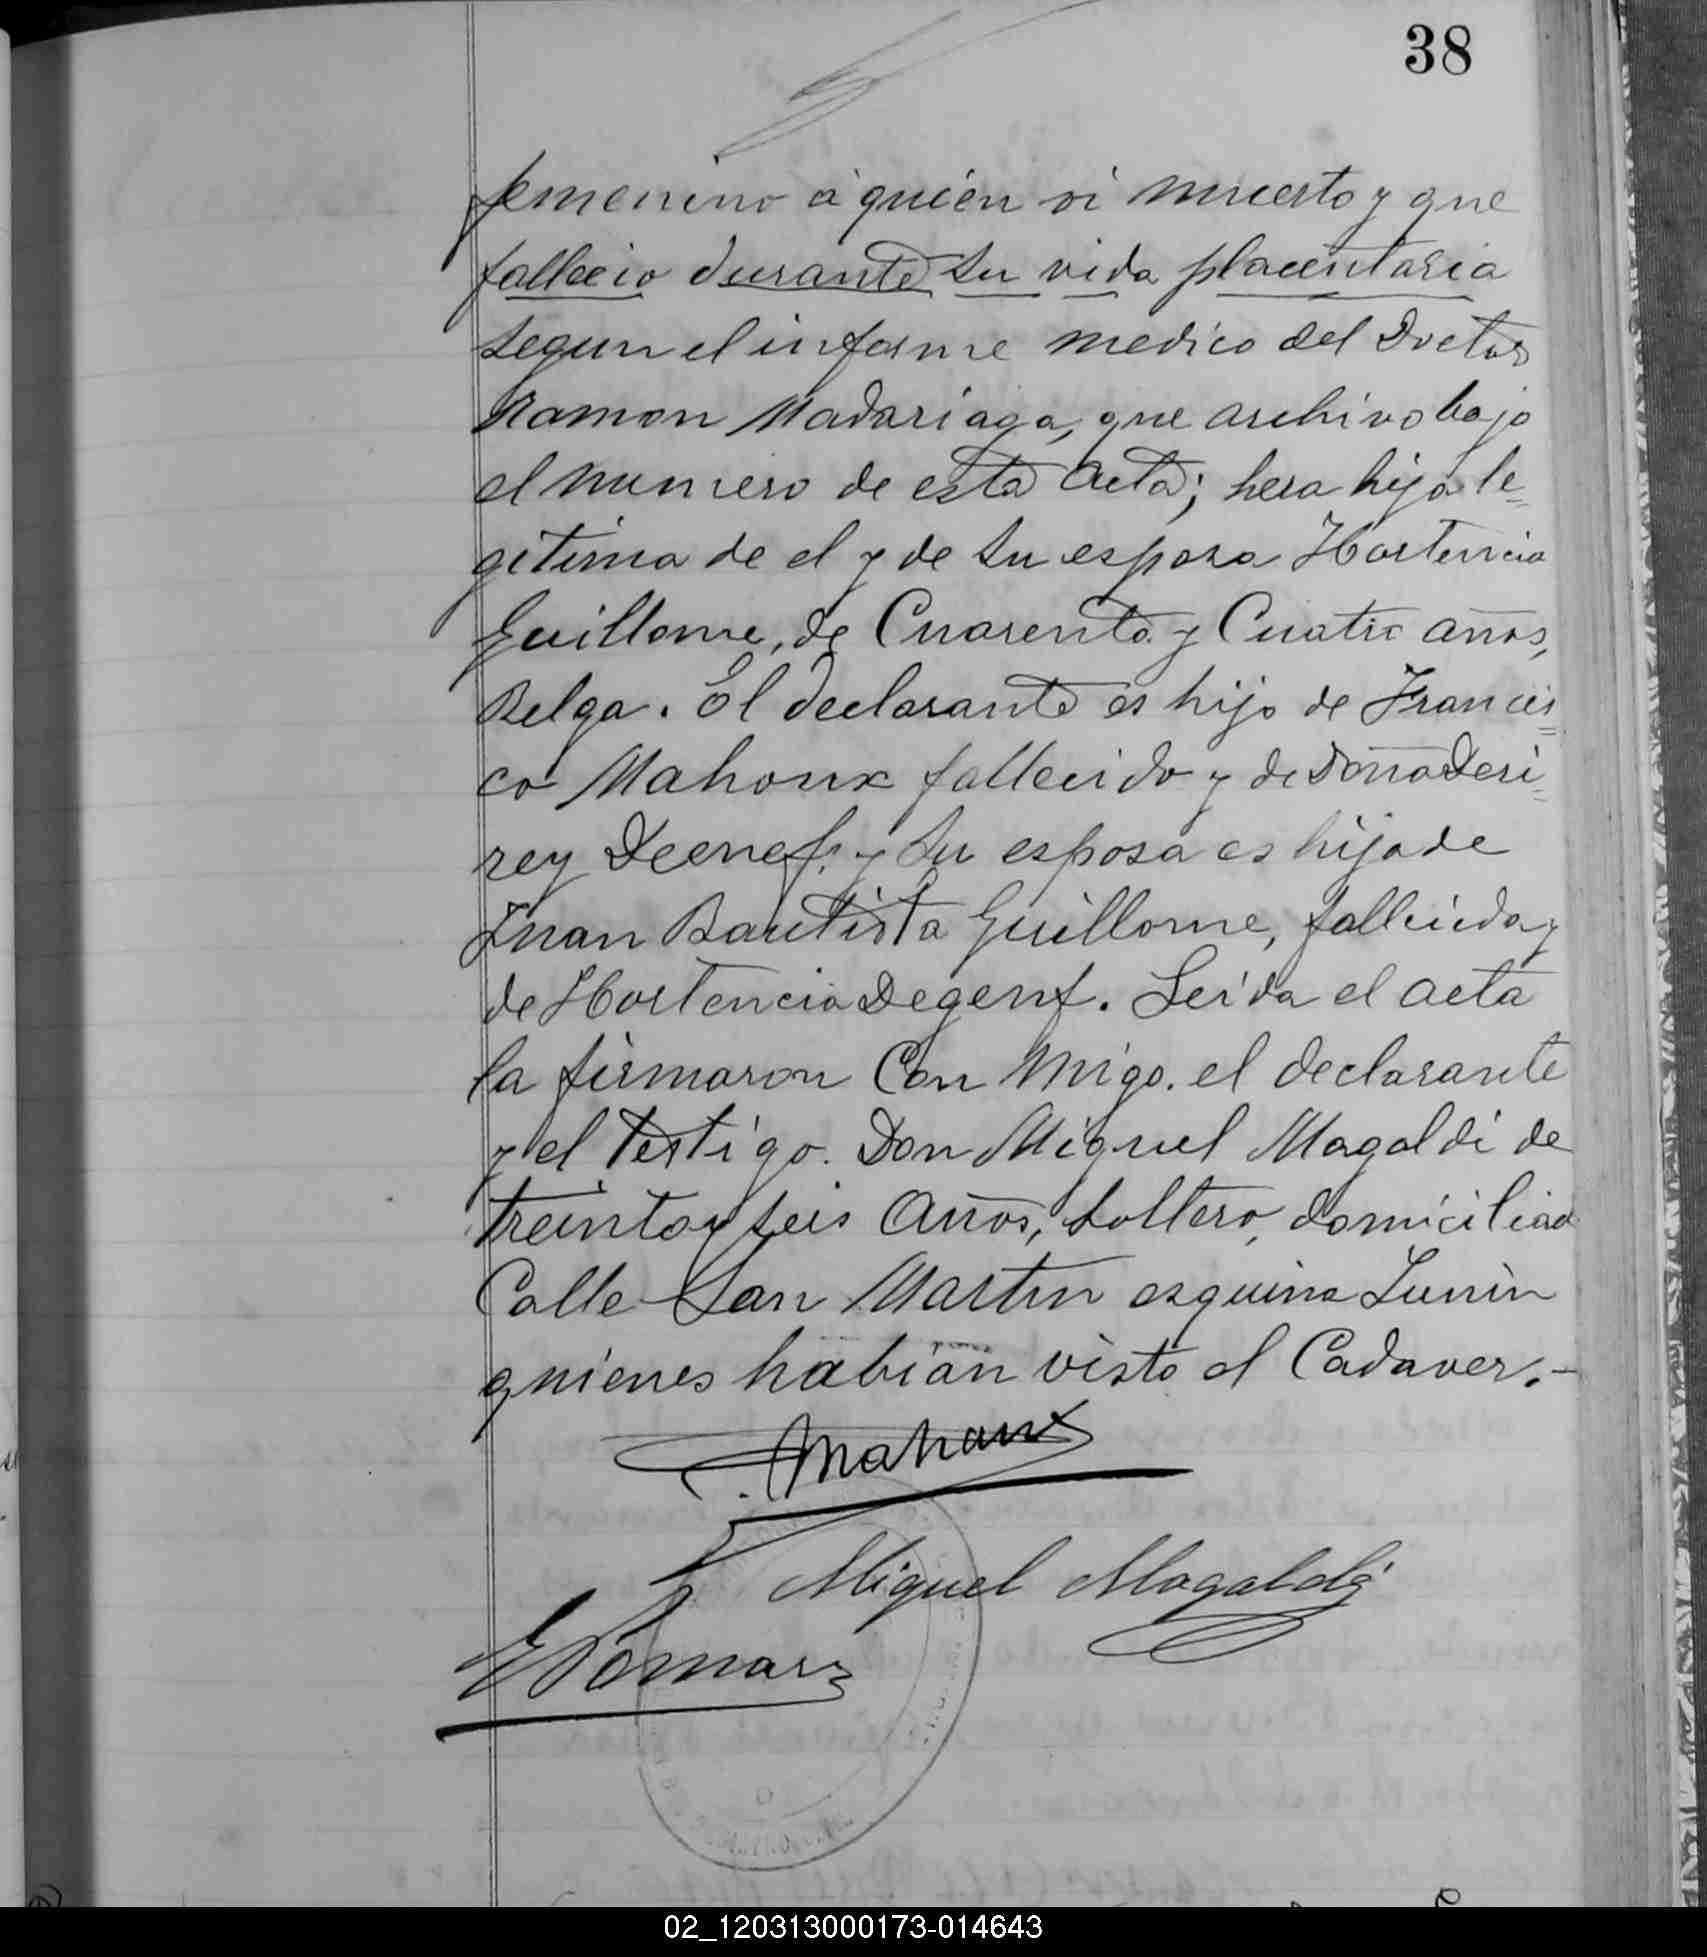 38
femenino á quien vi muerto y que
fallecio durante su vida placentaria
segun el informe medico del Doctor
Ramon Madariaga, que archivo bajo
el numero de esta acta; hera hija le=
gitima de el y de su esposa Hortencia
Guillome, de Cuarenta y Cuatro años,
Belga. El declarante es hijo de Francis=
co Mahoux fallecido y de Doña Desi=
rey Deenef. y su esposa es hija de
Juan Bautista Guillome, fallecido y
de Hortencia Degenf. Leida el acta
la firmaron Con Migo. el declarante
y el Testigo. Don Miguel Magaldi de
treinta y seis Años, soltero, domiciliad
Calle San Martin esquina Junin
quienes habian visto el Cadaver.-
Mahoux
Miguel Magaldi
02_120313000173-014643